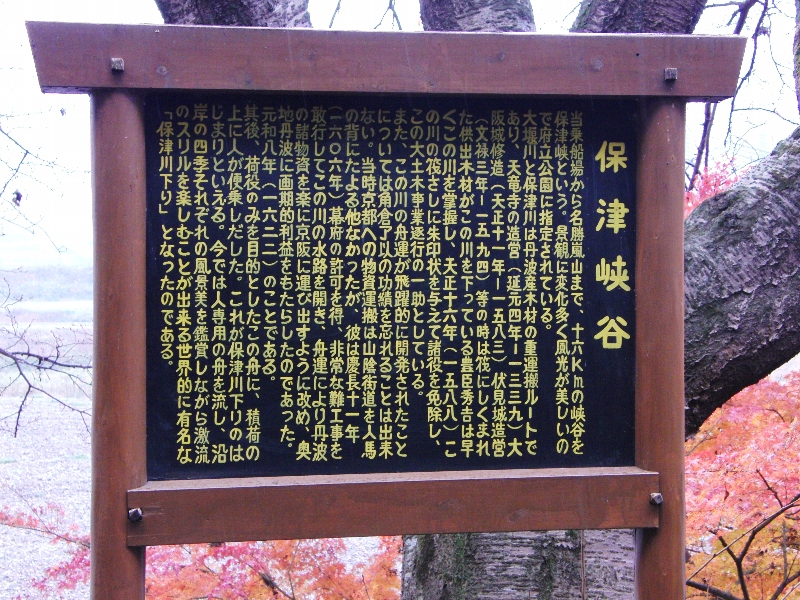 保津峡谷
当乗船場から名勝嵐山まで、十六Kmの峡谷を
保津峡という。景観に変化多く風光が美しいの
で府立公園に指定されている。
大堰川と保津川は丹波産木材の重運搬ルートで
あり、天竜寺の造営(延元四年ー一三三九)大
阪城修造(天正十一年ー一五八三)伏見城造営
(文禄三年ー一五九四)等の時は筏にしくまれ
た供出木材がこの川を下っている豊臣秀吉は早
くこの川を掌握し、天正十六年(一五八八)こ
の川の筏さしに朱印状を与えて諸役を免除し、
この大土木事業遂行の一助としている。
また、この川の舟運が飛躍的に開発されたこと
については角倉了以の功績を忘れることは出来
ない。当時京都への物資運搬は山陰街道を人馬
の背にたよる他なかったが、彼は慶長十一年
(一六〇六年)幕府の許可を得、非常な難工事を
敢行してこの川の水路を開き、舟運により丹波
の諸物資を楽に京阪に運び出すように改め、奥
地丹波に画期的利益をもたらしたのであった。
元和八年(一六二二)のことである。
其後、荷役のみを目的としたこの舟に、積荷の
上に人が便乗しだした。これが保津川下りのは
じまりといえる。今では人専用の舟を流し、沿
岸の四季それぞれの風景美を鑑賞しながら激流
のスリルを楽しむことが出来る世界的に有名な
「保津川下り」となったのである。